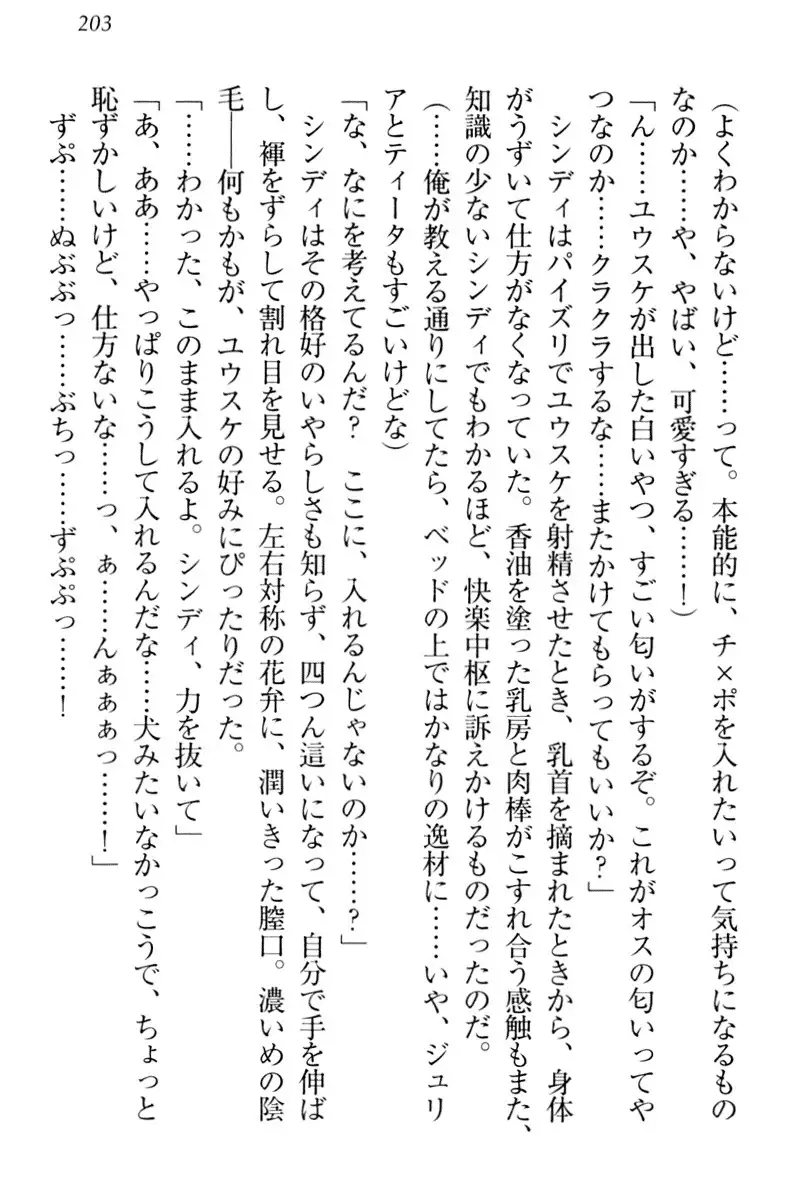 203
(よくわからないけど……って。本能的に、チ×ポを入れたいって気持ちになるもの
なのか……や、やばい、可愛すぎる……!)
「ん……ユウスケが出した白いやつ、すごい匂いがするぞ。これがオスの匂いってや
つなのか……クラクラするな……またかけてもらってもいいか?」
シンディはパイズリでユウスケを射精させたとき、乳首を摘まれたときから、身体
がうずいて仕方がなくなっていた。香油を塗った乳房と肉棒がこすれ合う感触もまた、
知識の少ないシンディでもわかるほど、快楽中枢に訴えかけるものだったのだ。
(……俺が教える通りにしてたら、ベッドの上ではかなりの逸材に……いや、ジュリ
アとティータもすごいけどな)
「な、なにを考えてるんだ? ここに、入れるんじゃないのか……?」
シンディはその格好のいやらしさも知らず、四つん這いになって、自分で手を伸ば
し、褌をずらして割れ目を見せる。左右対称の花弁に、潤いきった膣口。濃いめの陰
毛――何もかもが、ユウスケの好みにぴったりだった。
「……わかった、このまま入れるよ。シンディ、力を抜いて」
「あ、ああ……やっぱりこうして入れるんだな……犬みたいなかっこうで、ちょっと
恥ずかしいけど、仕方ないな……っ、ぁ……んぁぁぁっ……!」
ずぷ……ぬぶぶっ……ぶちっ……ずぷぷっ……!